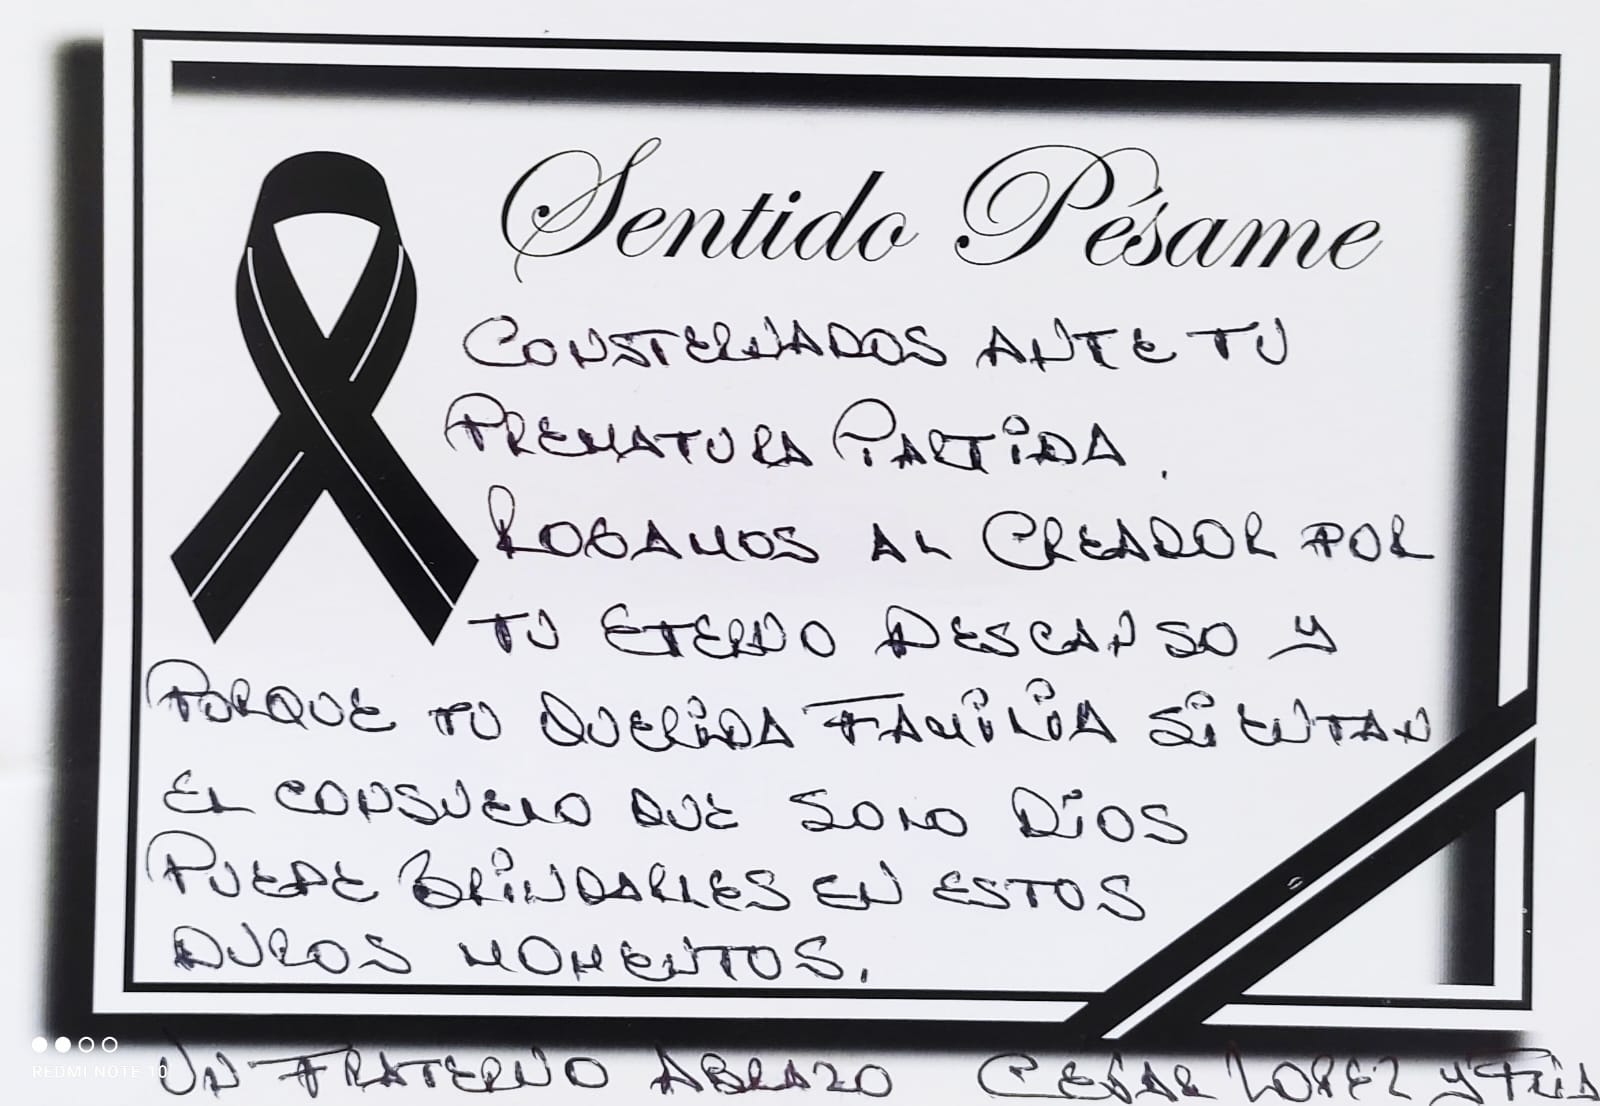 Sentido Pésame
CONSTERNADOS ANTE TU
PREMATURA PARTIDA.
ROGAMOS AL CREADOR POR
TU ETERNO DESCANSO Y
PORQUE TU QUERIDA FAMILIA SIENTAN
EL CONSUELO QUE SOLO DIOS
PUEDE BRINDARLES EN ESTOS
DUROS MOMENTOS.
UN FRATERNO ABRAZO CESAR LOPEZ Y FLIA
REDMI NOTE 10